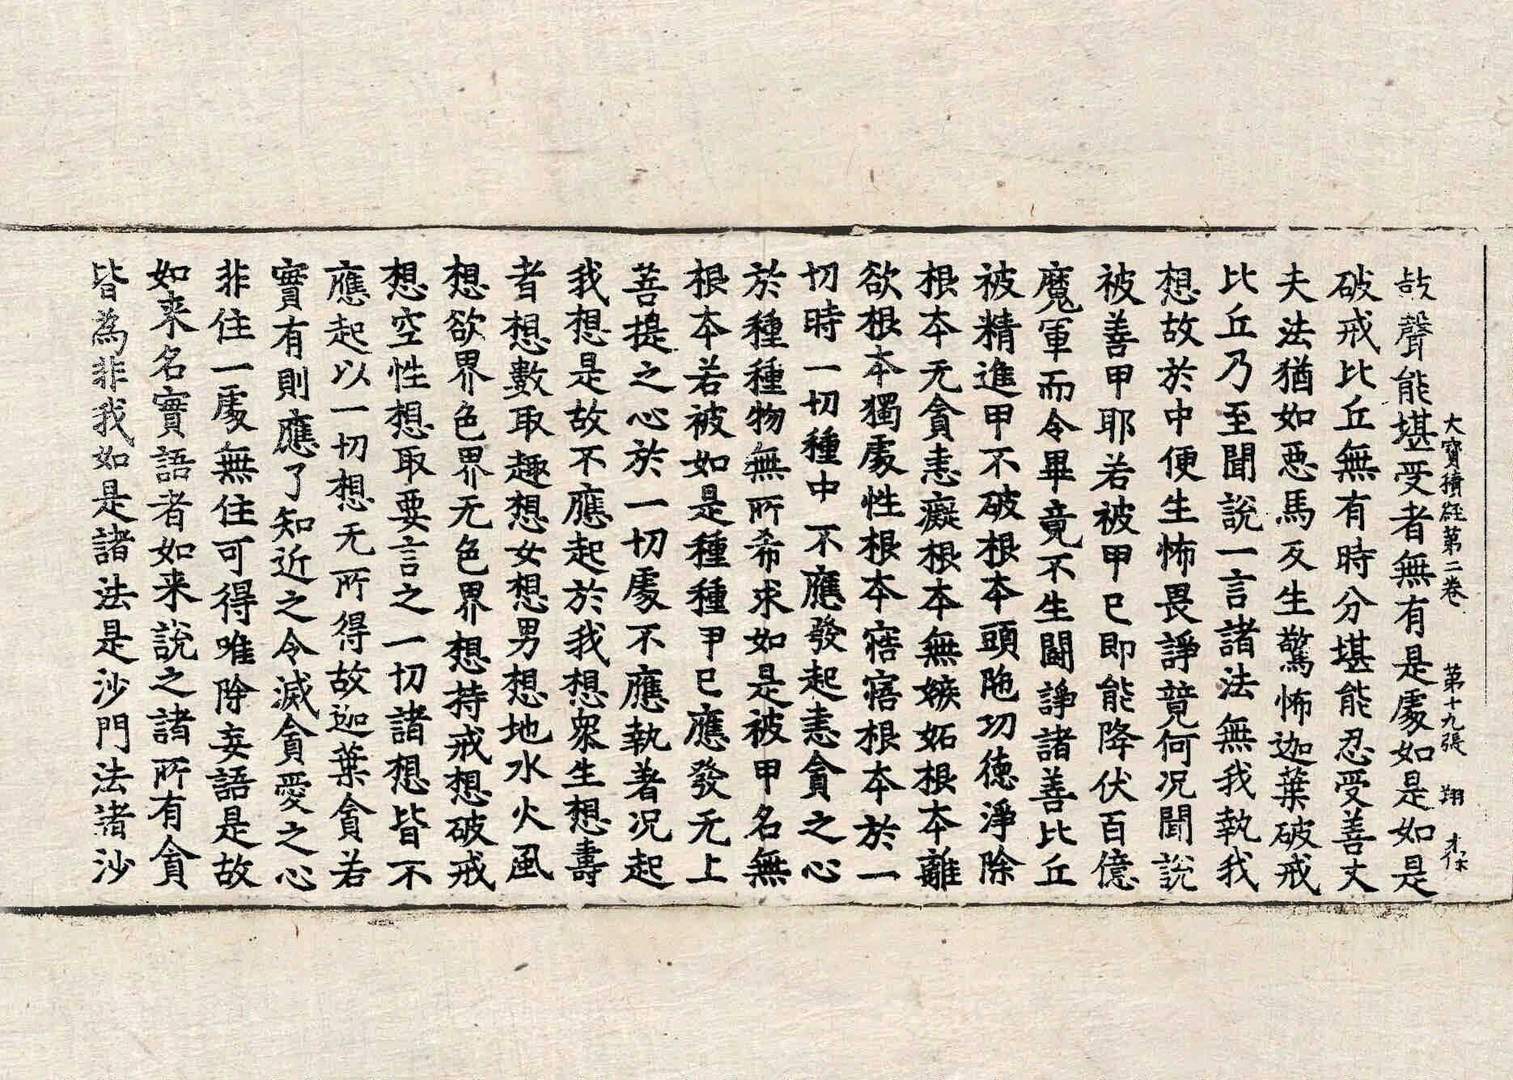 大寶積經第二卷　第十九張　翔
鼔聲能堪受者無有是處如是如是
破戒比丘無有時分堪能忍受善丈
夫法猶如惡馬反生驚怖迦葉破戒
比丘乃至聞說一言諸法無我執我
想故於中便生怖畏諍竟何况聞說
被善甲耶若被甲已即能降伏百億
魔軍而令畢竟不生鬪諍諸善比丘
被精進甲不破根本頭陁功德淨除
根本无貪恚癡根本無嫉妬根本離
欲根本獨處性根本寤寤根本於一
切時一切種中不應發起恚貪之心
於種種物無所希求如是被甲名無
根本若被如是種種甲已應發无上
菩提之心於一切處不應執著况起
我想是故不應起於我想衆生想壽
者想數取趣想女想男想地水火風
想欲界色界无色界想持戒想破戒
想空性想取要言之一切諸想皆不
應起以一切想无所得故迦葉貪若
實有則應了知近之令滅貪愛之心
非住一處無住可得唯除妄語是故
如来名實語者如来說之諸所有貪
皆為非我如是諸法是沙門法諸沙